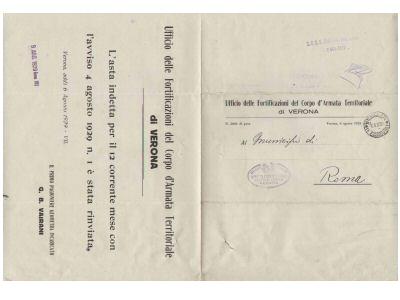 Ufficio delle Fortificazioni del Corpo d'Armata Territoriale
di VERONA
L'asta indetta per il 12 corrente mese con
l'avviso 4 agosto 1929 n. 1 è stata rinviata.
Verona, addì 6 Agosto 1929 - VII.
IL PRIMO RAGIONIERE GEOMETRA INCARICATO
G. B. VAIRANI
Ufficio delle Fortificazioni del Corpo d'Armata Territoriale
di VERONA
Verona, 6 agosto 1929
Al Municipio di
Roma